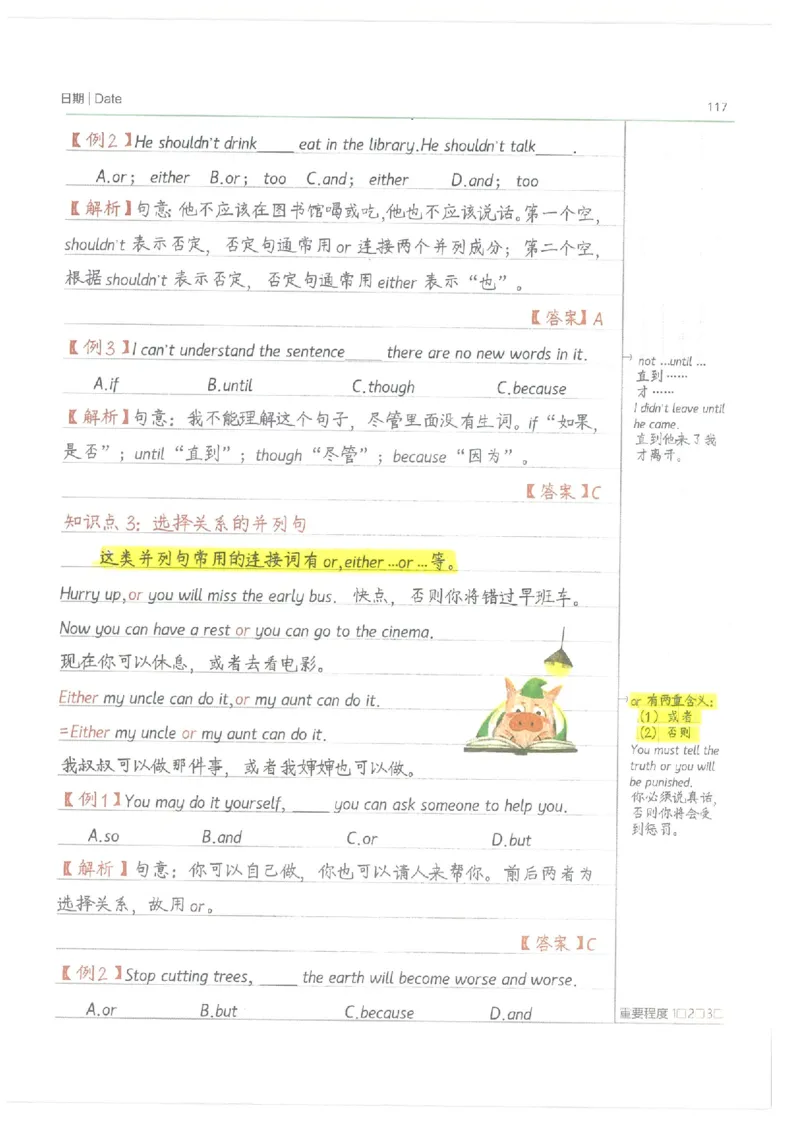 日期 | Date
117
【例2】He shouldn't drink_____ eat in the library.He shouldn't talk_____.
A.or; either B.or; too C.and; either D.and; too
【解析】句意:他不应该在图书馆喝或吃,他也不应该说话。第一个空,
shouldn't 表示否定，否定句通常用 or 连接两个并列成分；第二个空,
根据 shouldn't 表示否定，否定句通常用 either 表示“也”。
【答案】A
【例3】I can't understand the sentence_____ there are no new words in it.
A.if B.until C.though D.because
【解析】句意：我不能理解这个句子，尽管里面没有生词。if“如果,
是否”；until“直到”；though“尽管”；because“因为”。
【答案】C
not ...until ...
直到……
才……
I didn't leave until
he came.
直到他来了我
才离开。
知识点3：选择关系的并列句
这类并列句常用的连接词有 or,either ...or ...等。
Hurry up,or you will miss the early bus. 快点，否则你将错过早班车。
Now you can have a rest or you can go to the cinema.
现在你可以休息，或者去看电影。
Either my uncle can do it,or my aunt can do it.
=Either my uncle or my aunt can do it.
我叔叔可以做那件事，或者我婶婶也可以做。
or 有两重含义：
(1) 或者
(2) 否则
You must tell the
truth or you will
be punished.
你必须说真话,
否则你将会受
到惩罚。
【例1】You may do it yourself, _____ you can ask someone to help you.
A.so B.and C.or D.but
【解析】句意：你可以自己做，你也可以请人来帮你。前后两者为
选择关系，故用 or。
【答案】C
【例2】Stop cutting trees, _____ the earth will become worse and worse.
A.or B.but C.because D.and
重要程度 1□2□3□